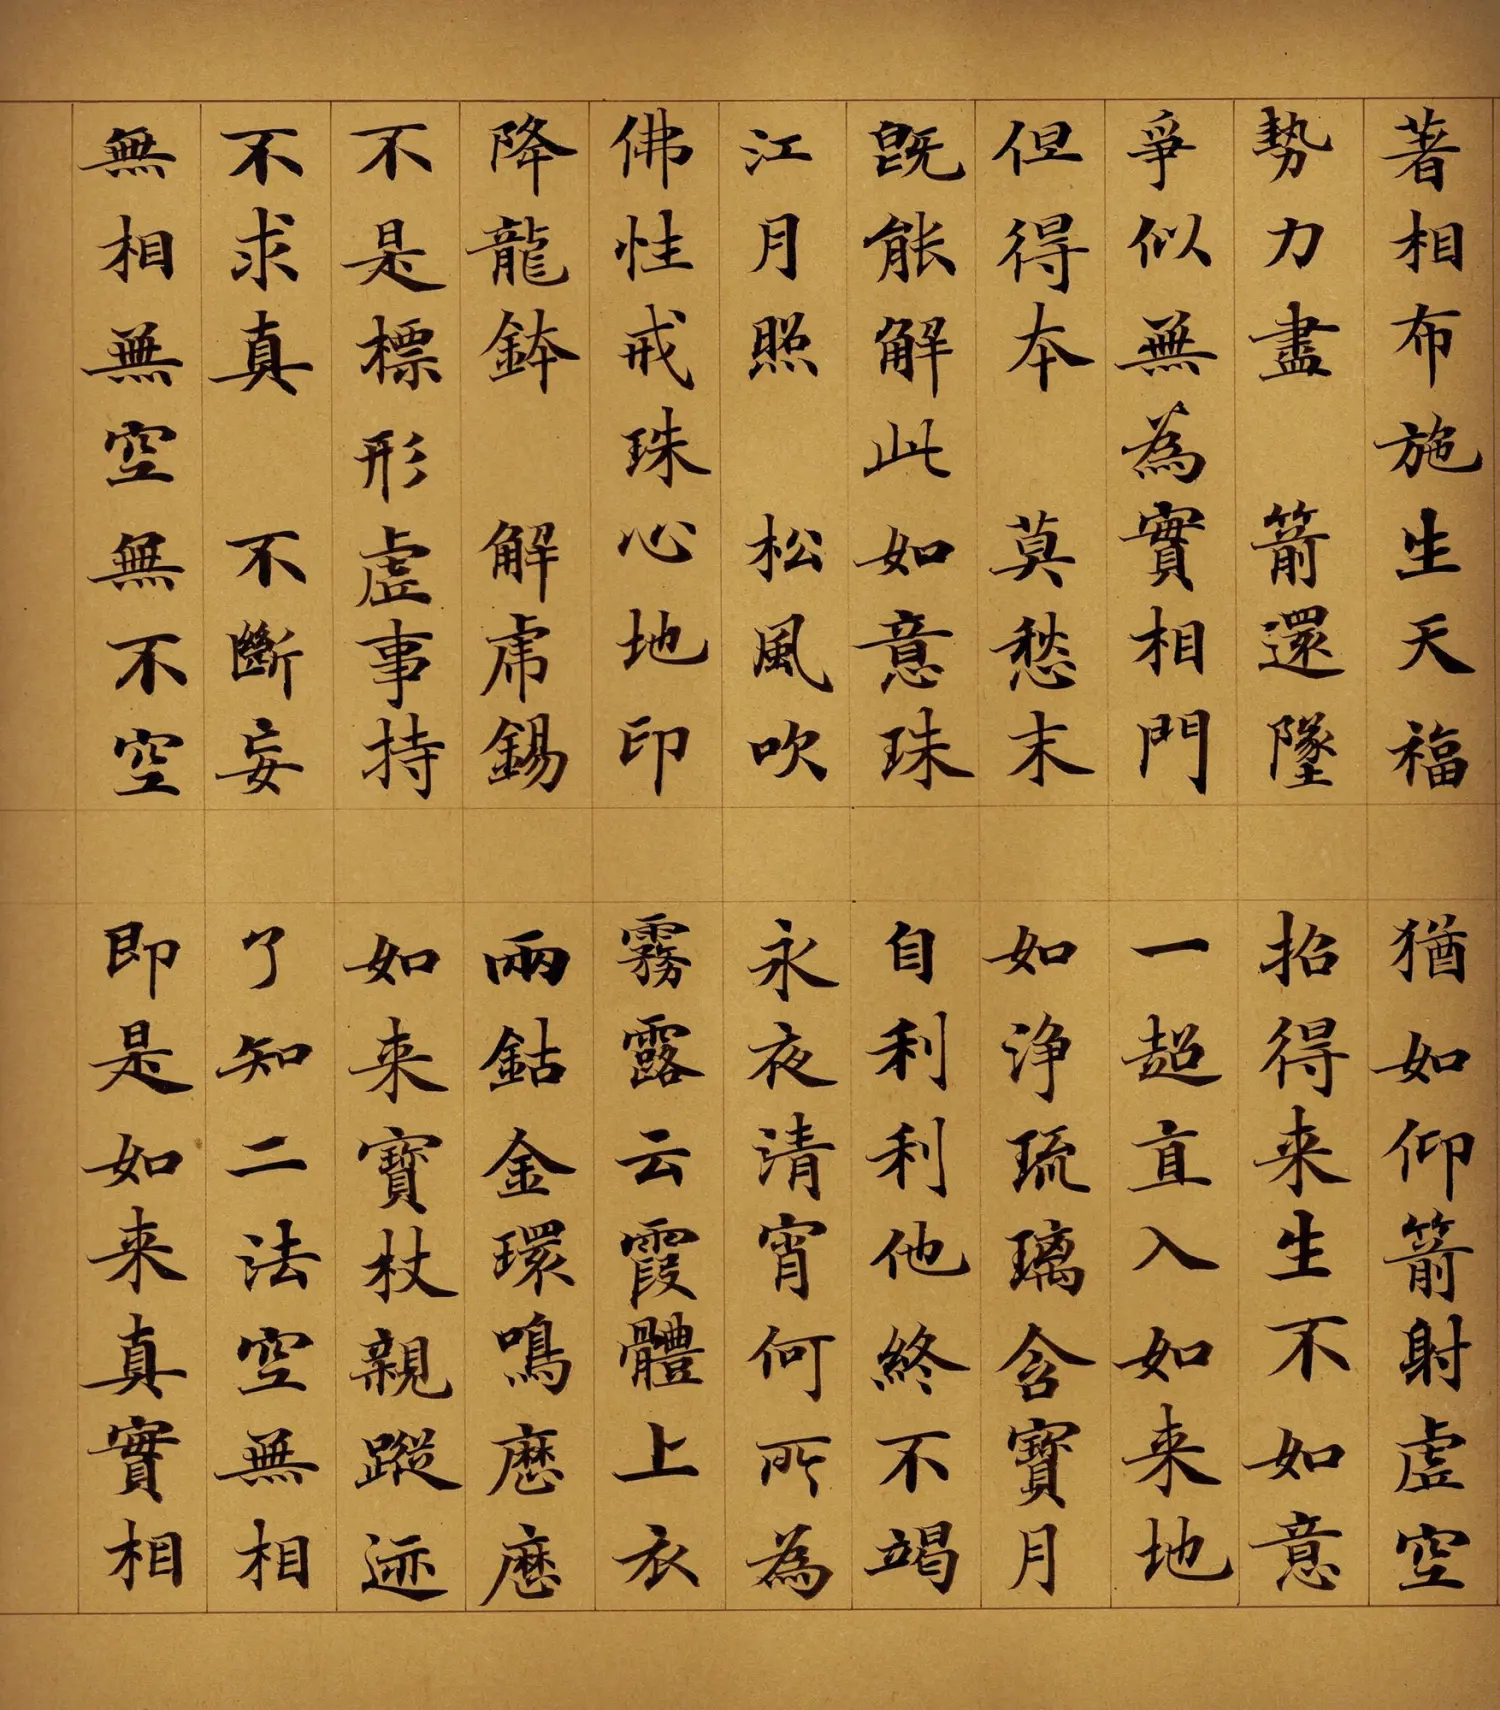 著相布施生天福 猶如仰箭射虛空
勢力盡 箭還墜 招得来生不如意
爭似無為實相門 一超直入如来地
但得本 莫愁末 如淨琉璃含寶月
既能解此如意珠 自利利他終不竭
江月照 松風吹 永夜清宵何所為
佛性戒珠心地印 霧露云霞體上衣
降龍鉢 解虎錫 兩鈷金環鳴歷歷
不是標形虛事持 如来寶杖親蹤迹
不求真 不斷妄 了知二法空無相
無相無空無不空 即是如来真實相